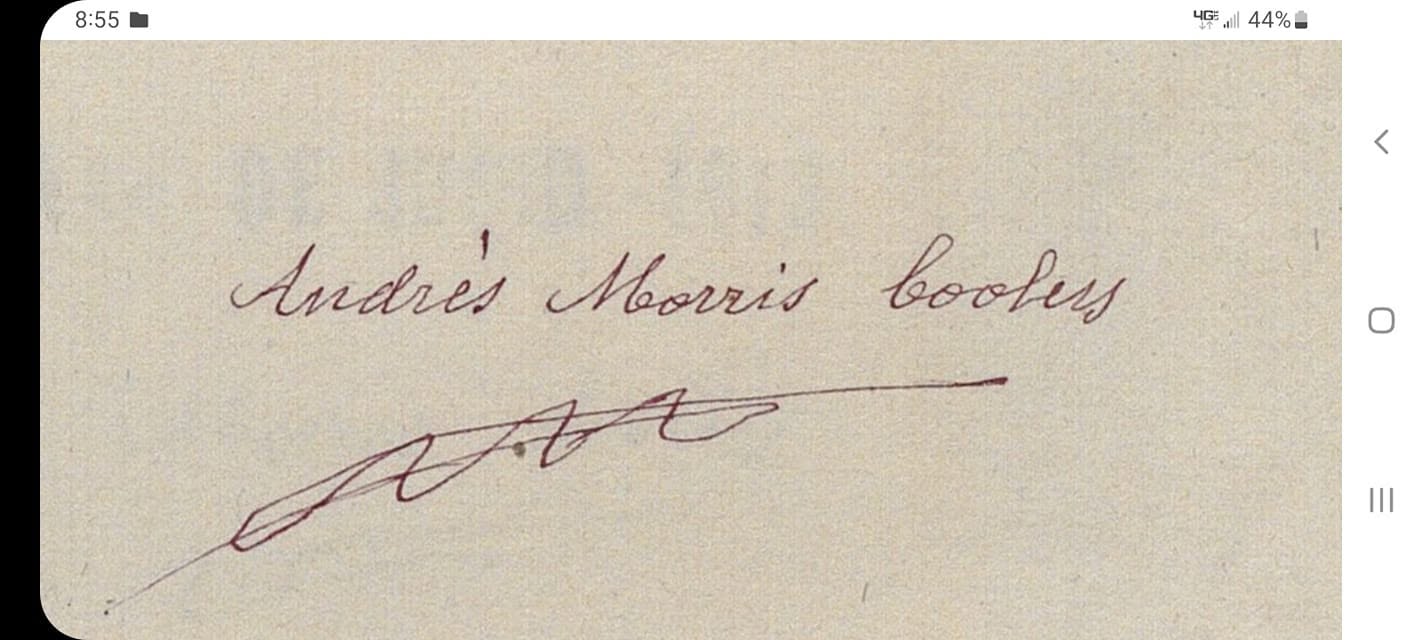 8:55 4G 44%
Andrés Morris